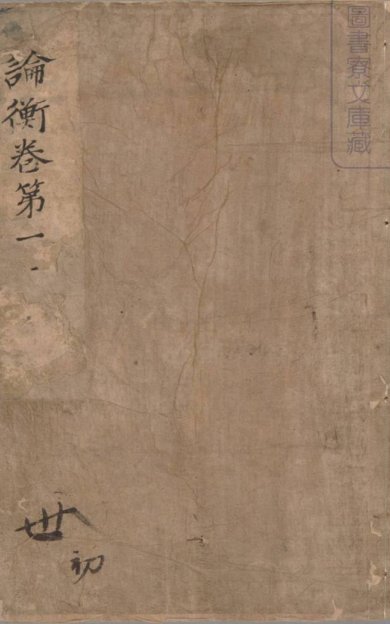 圖書寮文庫藏
論衡卷第一
丗
初